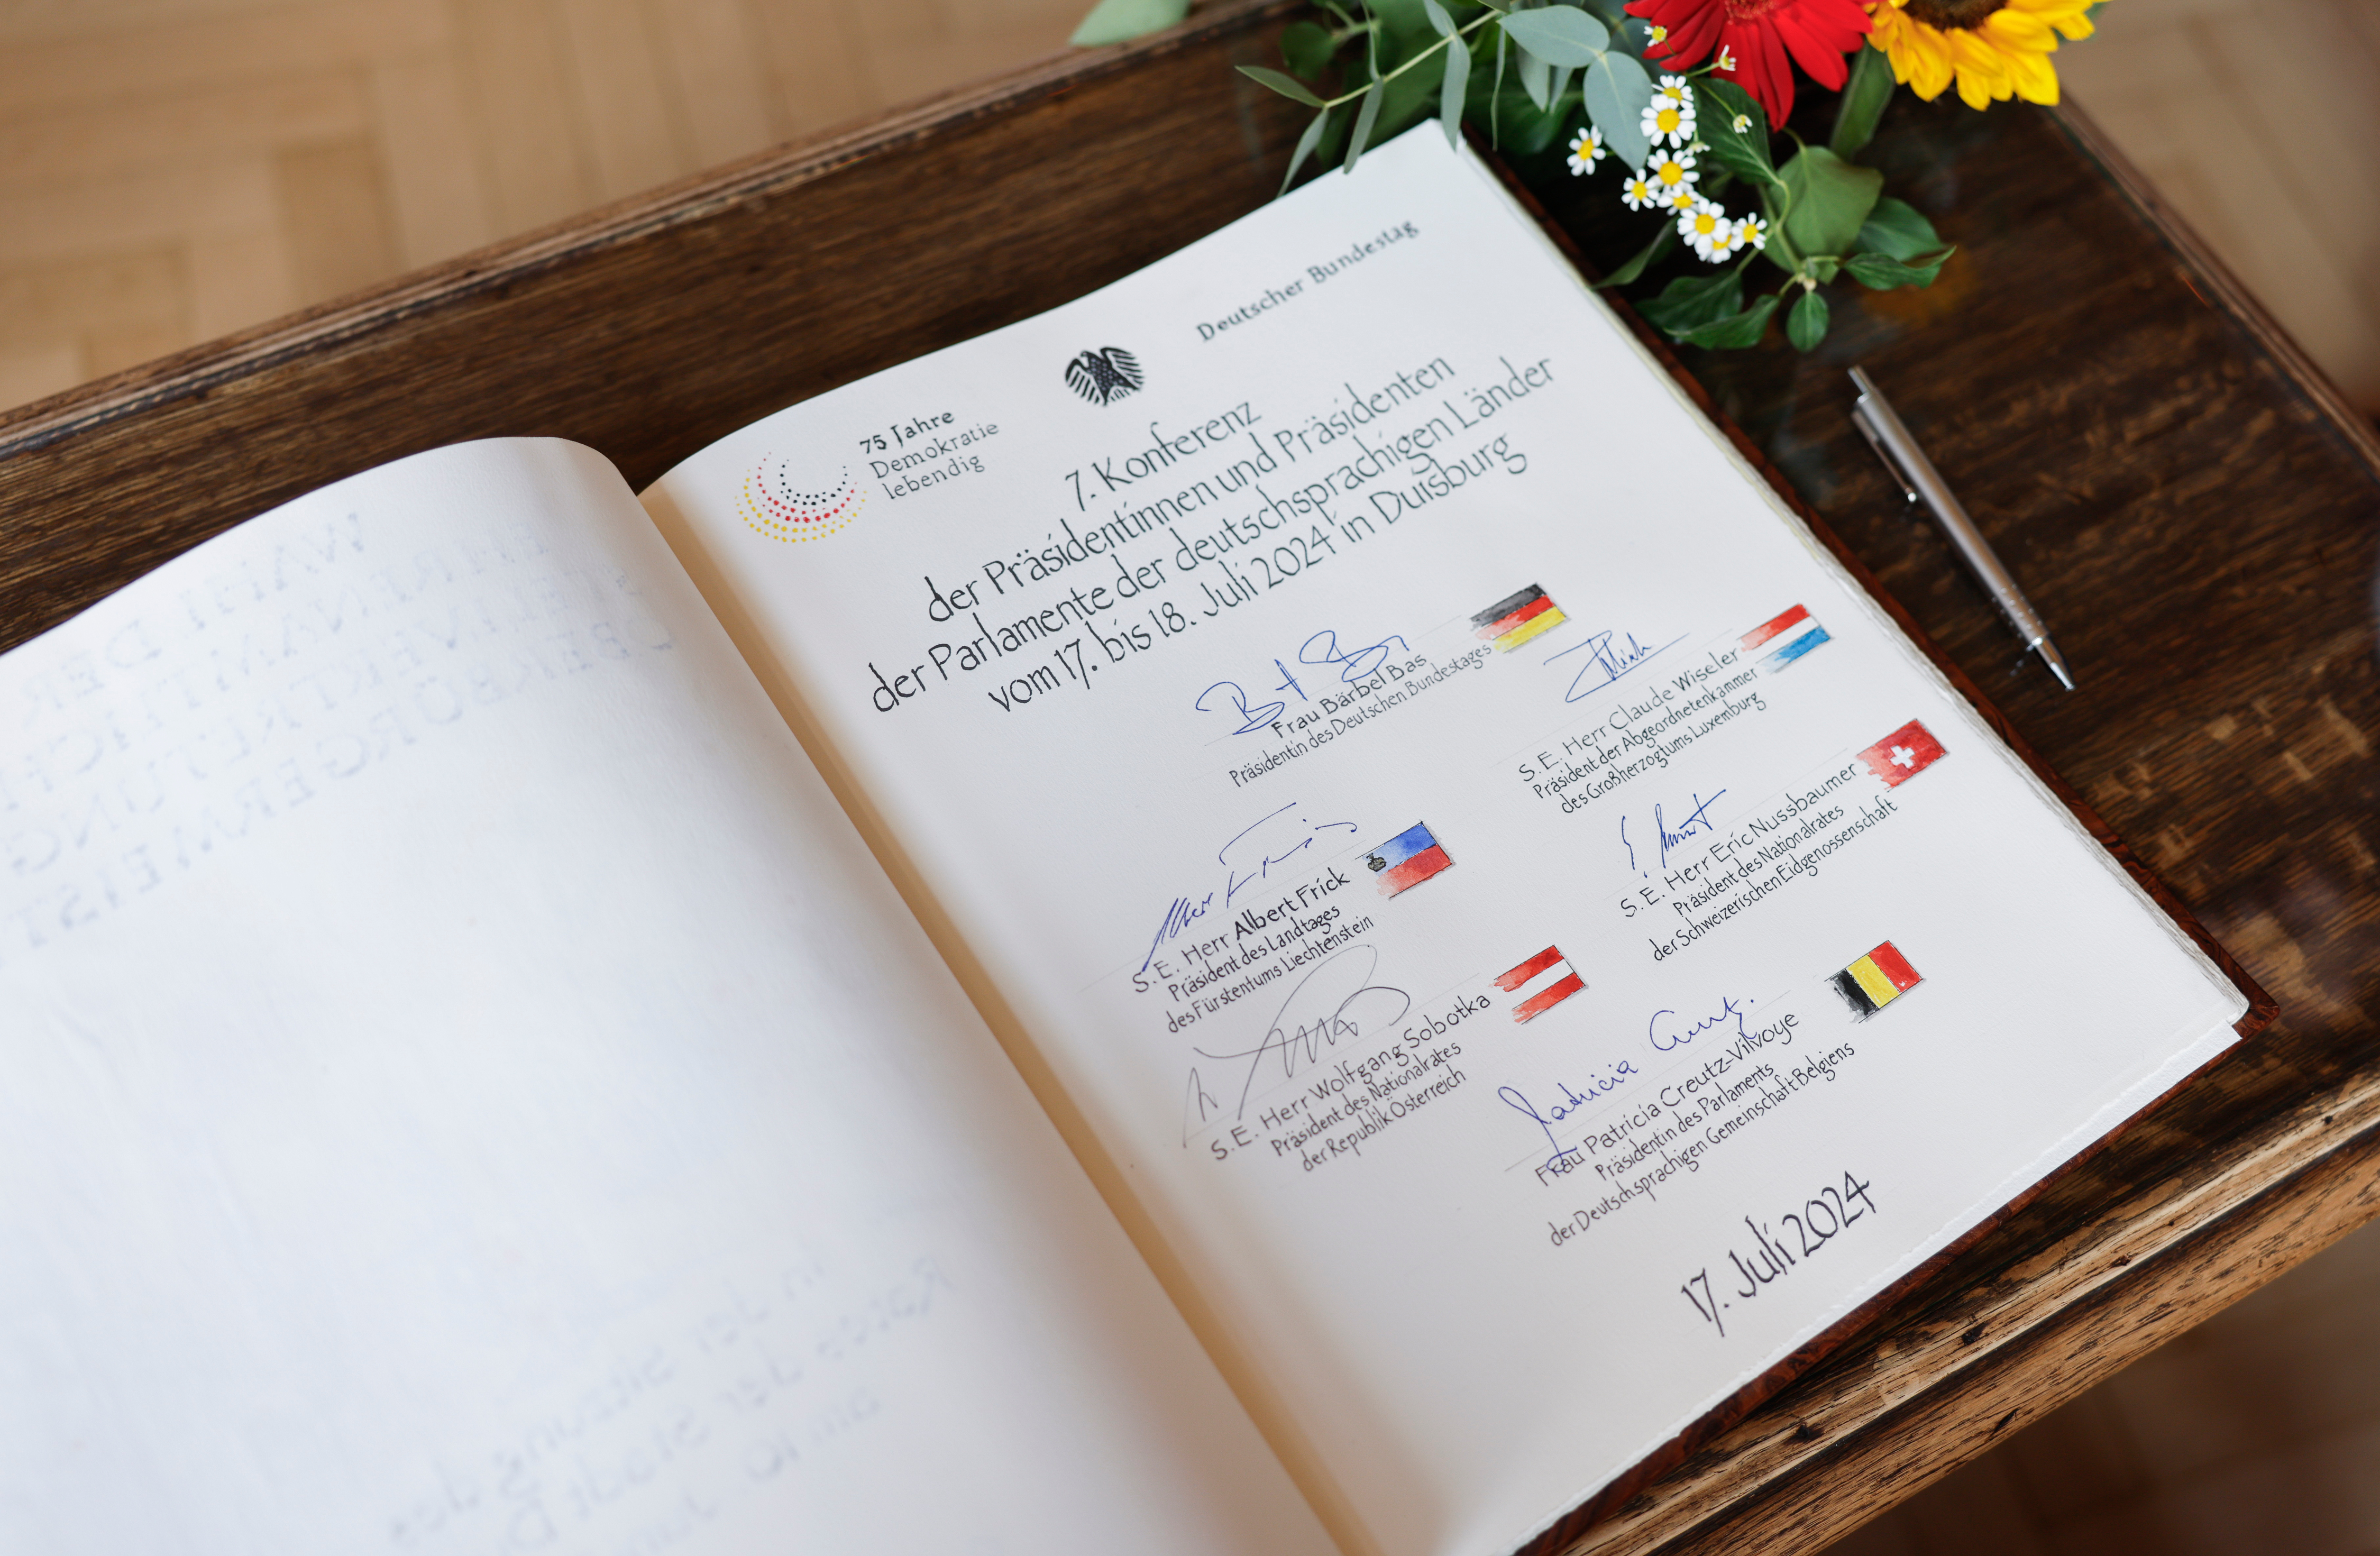 75 Jahre
Demokratie
lebendig
Deutscher Bundestag
7. Konferenz
der Präsidentinnen und Präsidenten
der Parlamente der deutschsprachigen Länder
vom 17. bis 18. Juli 2024 in Duisburg
Frau Bärbel Bas
Präsidentin des Deutschen Bundestages
S. E. Herr Claude Wiseler
Präsident der Abgeordnetenkammer
des Großherzogtums Luxemburg
S. E. Herr Albert Frick
Präsident des Landtages
des Fürstentums Liechtenstein
S. E. Herr Eric Nussbaumer
Präsident des Nationalrates
der Schweizerischen Eidgenossenschaft
S. E. Herr Wolfgang Sobotka
Präsident des Nationalrates
der Republik Österreich
Patricia
Frau Patricia Creutz-Vilvoye
Präsidentin des Parlaments
der Deutschsprachigen Gemeinschaft Belgiens
17. Juli 2024